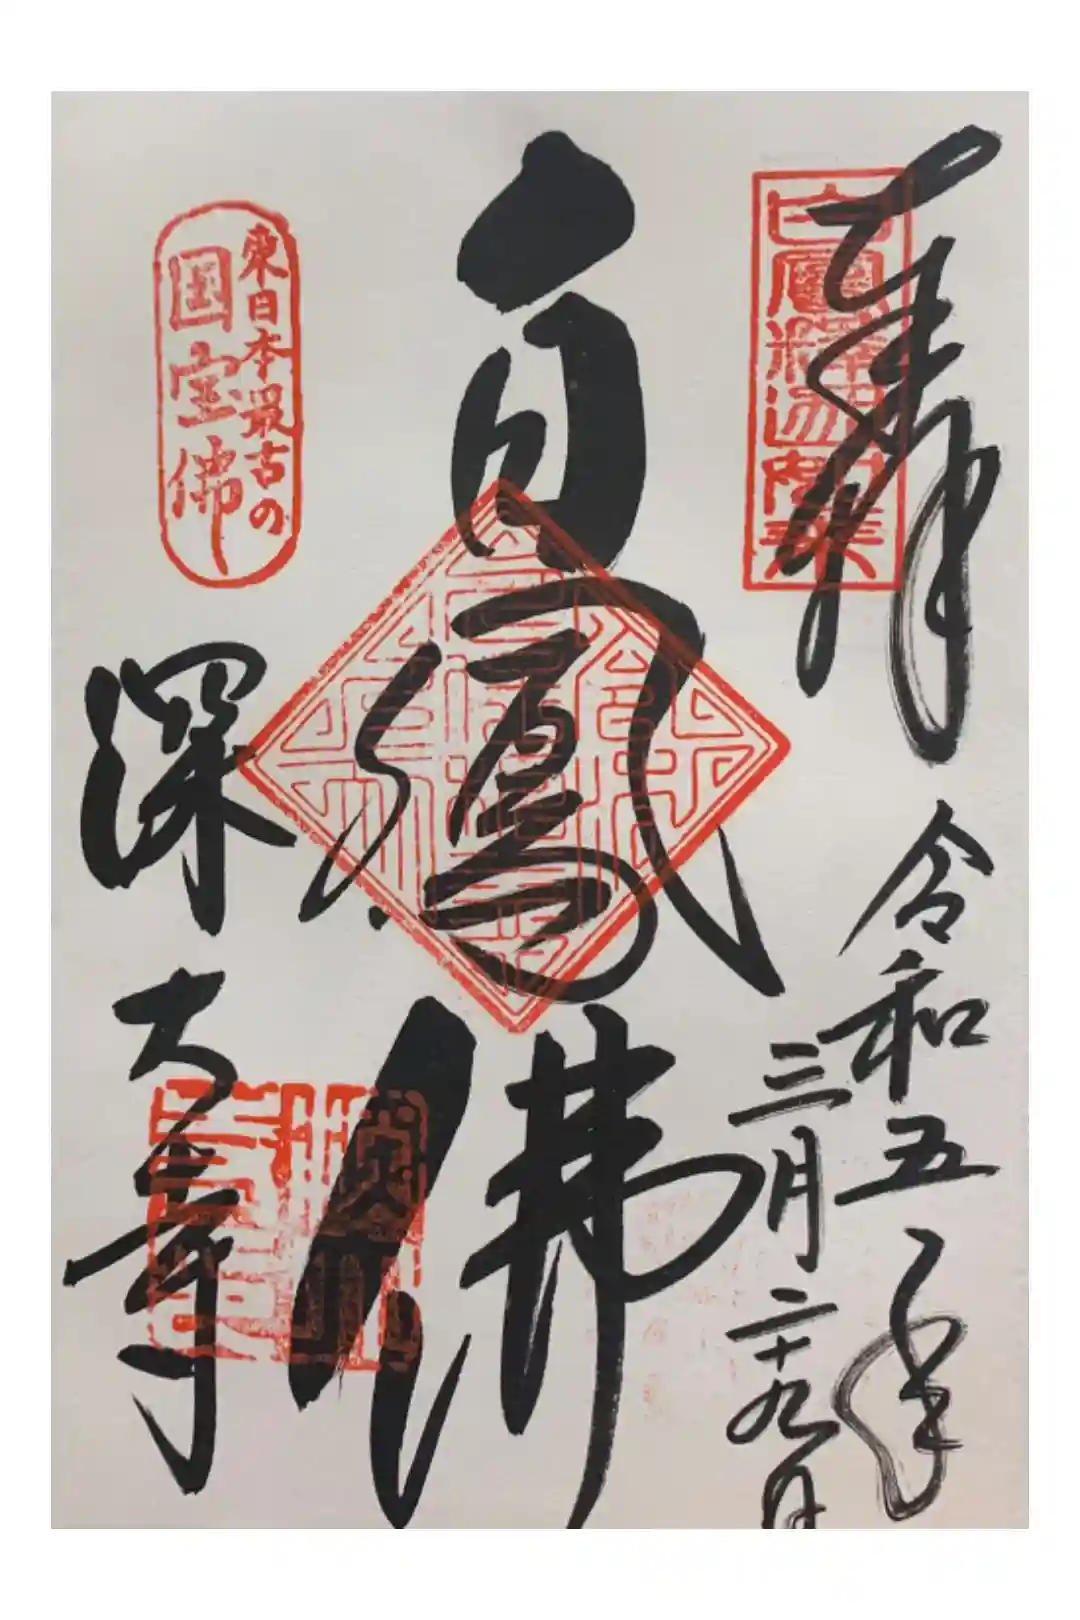 奉拝
令和五年
三月二十九日
白鳳佛
深大寺
東日本最古の
国宝佛
白鳳釋迦如来